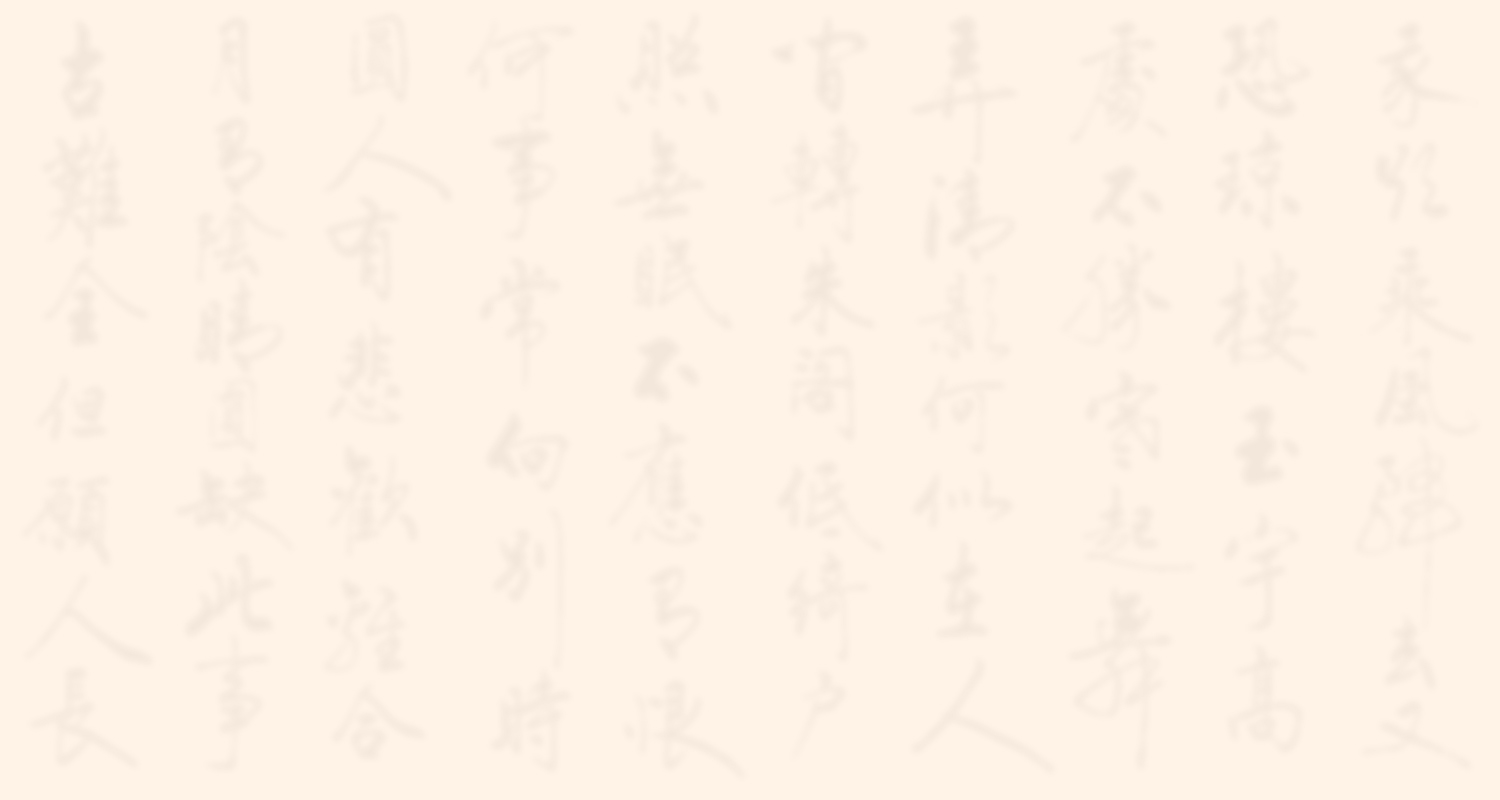 我欲乘風歸去又
恐瓊樓玉宇高
處不勝寒起舞
弄清影何似在人
間轉朱閣低綺戶
照無眠不應有恨
何事常向別時
圓人有悲歡離合
月有陰晴圓缺此事
古難全但願人長